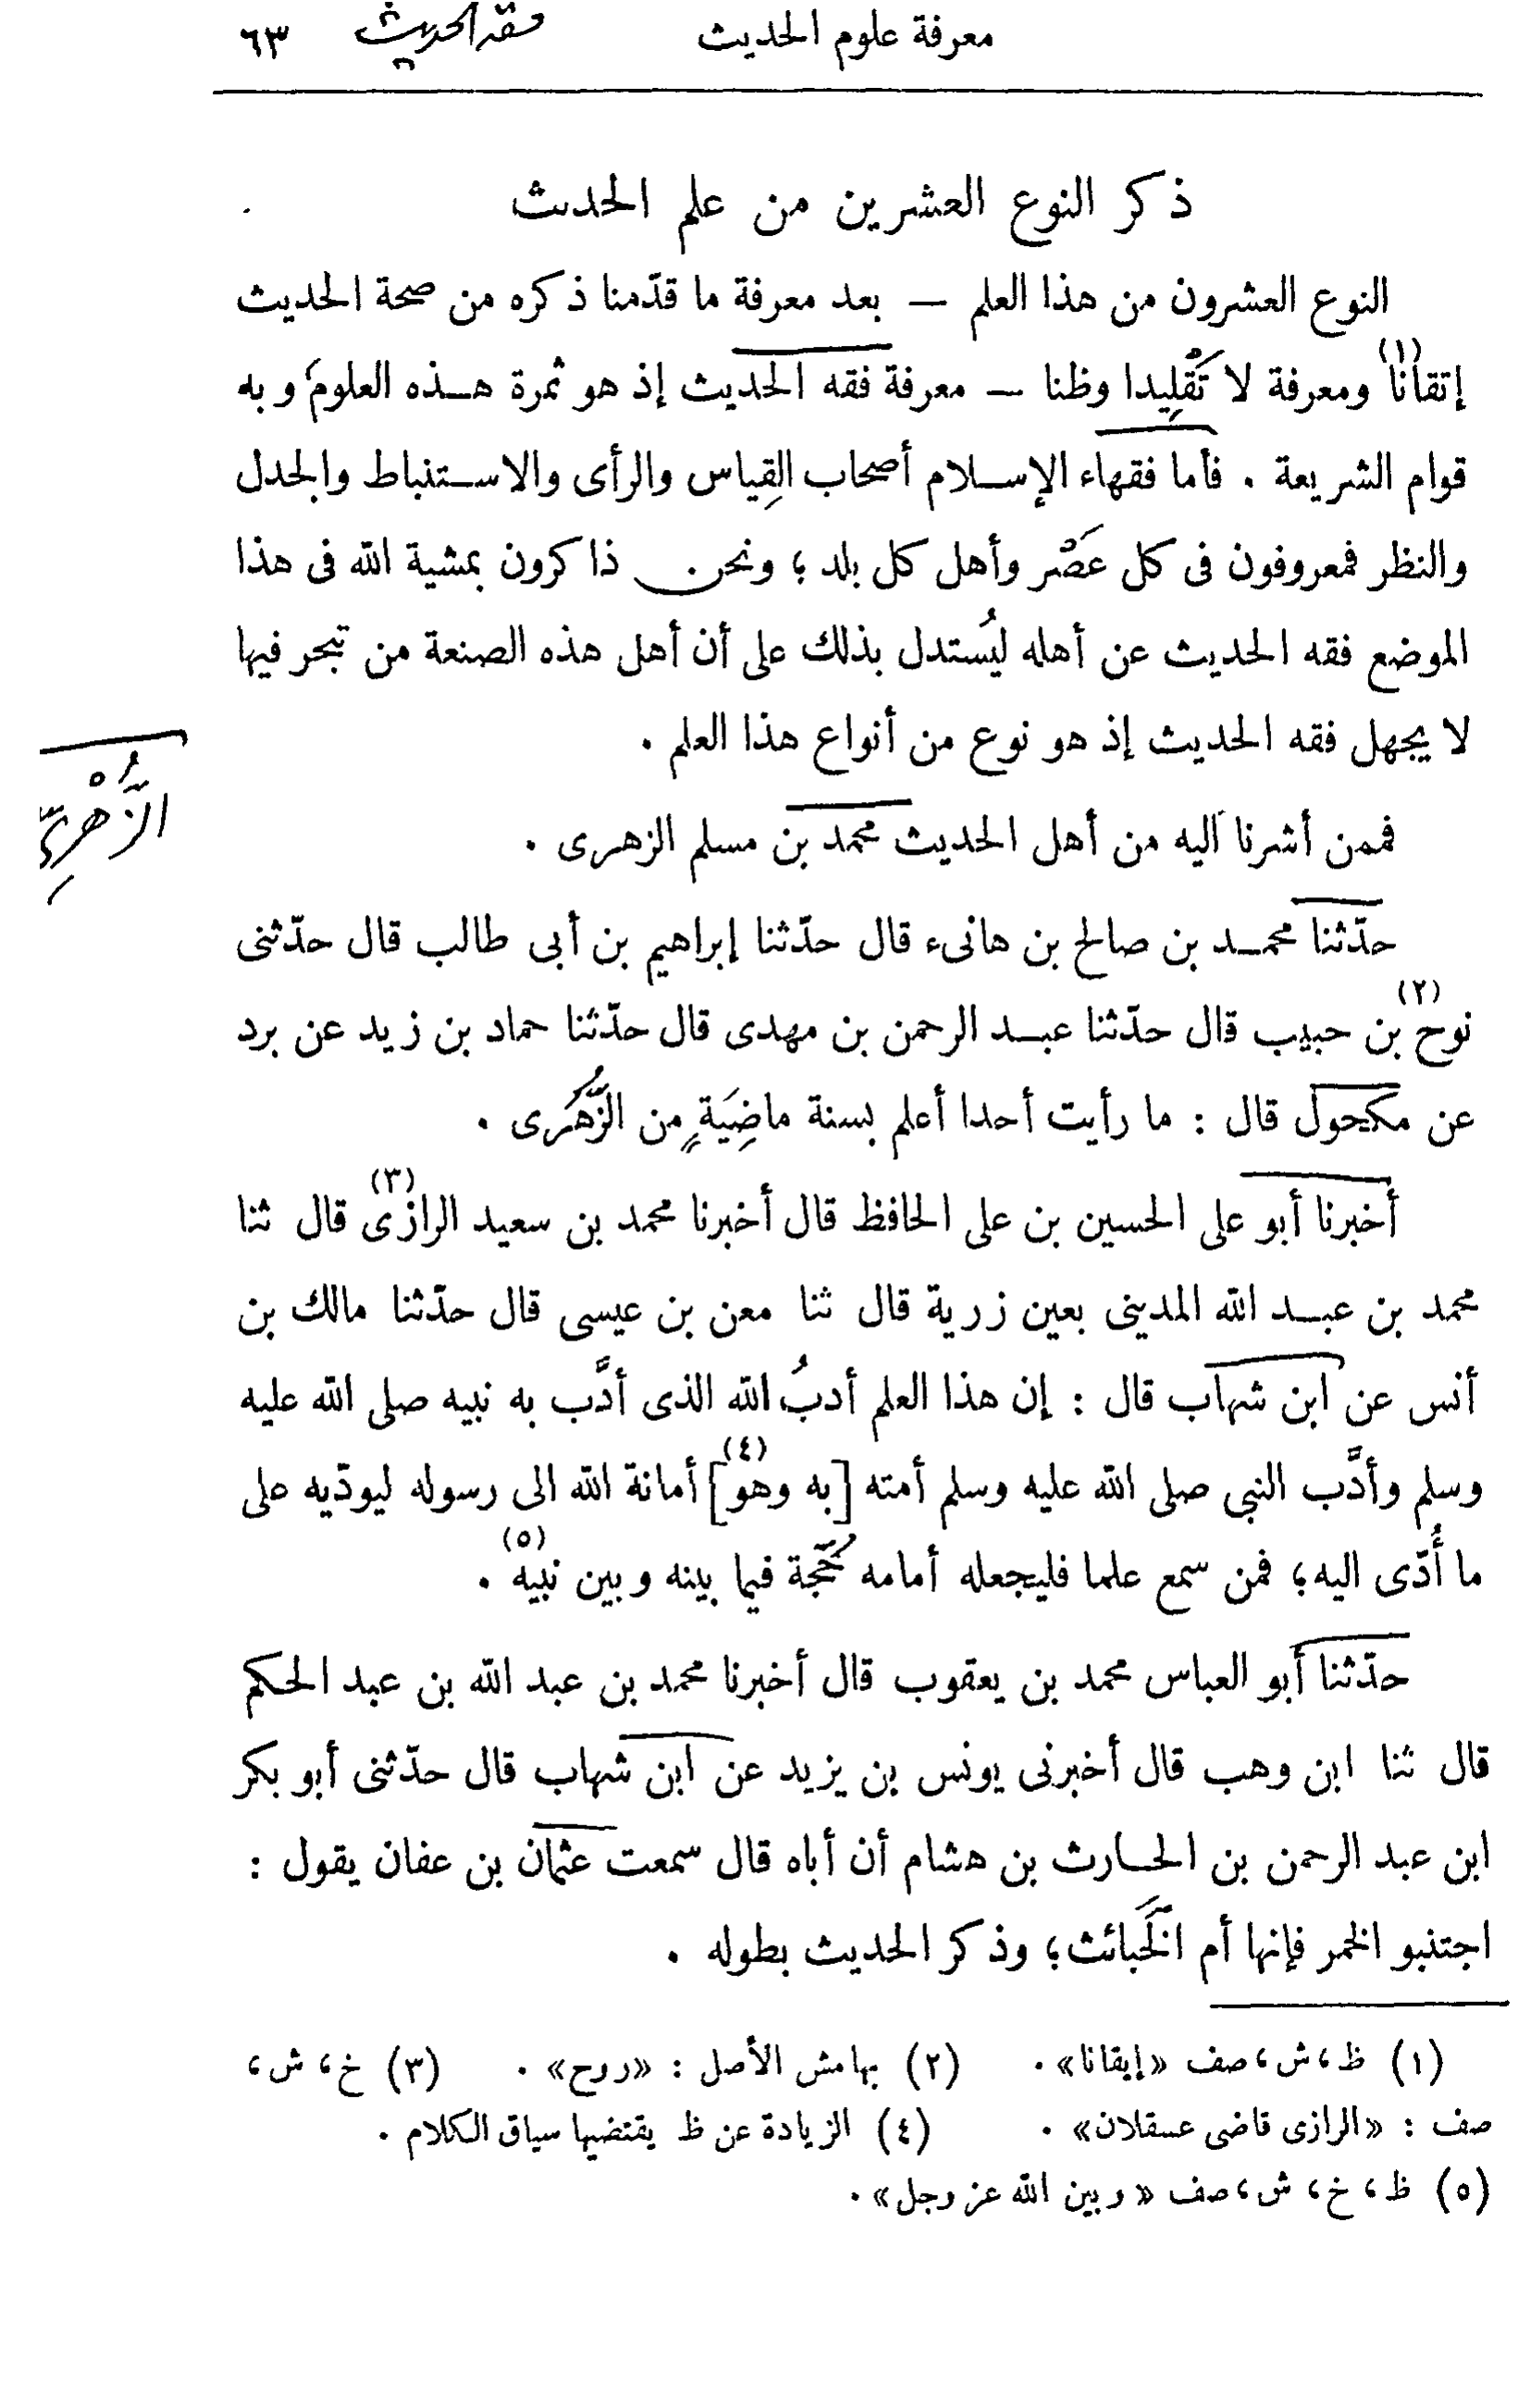 معرفة علوم الحديث فقه الحديث ٦٣
ذكر النوع العشرين من علم الحديث
النوع العشرون من هذا العلم — بعد معرفة ما قدّمنا ذكره من صحة الحديث
إتقانا(١) ومعرفة لا تَقْلِيدا وظنا — معرفة فقه الحديث إذ هو ثمرة هذه العلوم وبه
قوام الشريعة . فأما فقهاء الإسلام أصحاب القِياس والرأى والاستنباط والجدل
والنظر فمعروفون فى كل عَصْر وأهل كل بلد ؛ ونحن ذاكرون بمشية الله فى هذا
الموضع فقه الحديث عن أهله ليُستدل بذلك على أن أهل هذه الصنعة من تبحر فيها
لا يجهل فقه الحديث إذ هو نوع من أنواع هذا العلم .
الزُّهْرِيّ
فممن أشرنا اليه من أهل الحديث محمد بن مسلم الزهرى .
حدّثنا محمد بن صالح بن هانىء قال حدّثنا إبراهيم بن أبى طالب قال حدّثنى
نوح(٢) بن حبيب قال حدّثنا عبد الرحمن بن مهدى قال حدّثنا حماد بن زيد عن برد
عن مكحول قال : ما رأيت أحدا أعلم بسنة ماضِيَةٍ من الزُّهْرى .
أخبرنا أبو على الحسين بن على الحافظ قال أخبرنا محمد بن سعيد الرازى(٣) قال ثنا
محمد بن عبد الله المدينى بعين زربة قال ثنا معن بن عيسى قال حدّثنا مالك بن
أنس عن ابن شهاب قال : إن هذا العلم أدبُ الله الذى أدَّب به نبيه صلى الله عليه
وسلم وأدَّب النبى صلى الله عليه وسلم أمته [به وهو](٤) أمانة الله الى رسوله ليودّيه على
ما أُدّى اليه ؛ فمن سمع علما فليجعله أمامه حُجّة فيما بينه وبين نبيه(٥) .
حدّثنا أبو العباس محمد بن يعقوب قال أخبرنا محمد بن عبد الله بن عبد الحكم
قال ثنا ابن وهب قال أخبرنى يونس بن يزيد عن ابن شهاب قال حدّثنى أبو بكر
ابن عبد الرحمن بن الحارث بن هشام أن أباه قال سمعت عثمان بن عفان يقول :
اجتنبو الخمر فإنها أم الخَبائث ؛ وذكر الحديث بطوله .
(١) ظ ، ش ، صف «إيقانا» . (٢) بهامش الأصل : «روح» . (٣) خ ، ش ،
صف : «الرازى قاضى عسقلان» . (٤) الزيادة عن ظ يقتضيها سياق الكلام .
(٥) ظ ، خ ، ش ، صف «وبين الله عز وجل» .